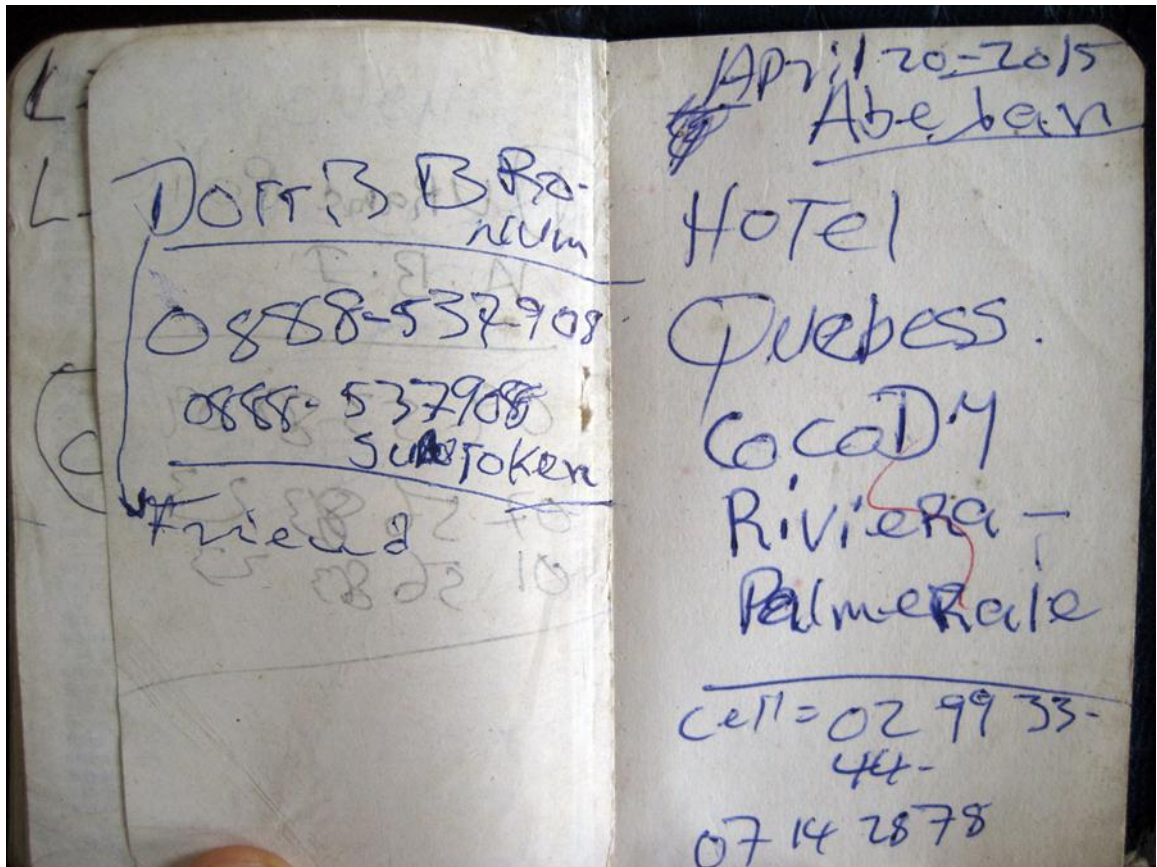 L
L
DorrB BRo-
nium
08888-537-908
0888-537908
Token
Friend
April 20-2015
Abeban
HoTel
Quebess.
CoCoDY
RivieRa -
PalmeRaie
cell = 02 99 33-
44-
07 14 28 78